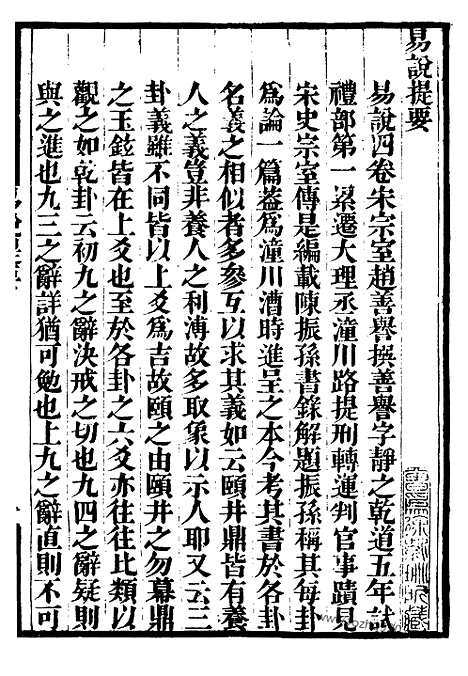 易說提要
易說四卷宋宗室趙善譽撰善譽字靜之乾道五年試
禮部第一累遷大理丞潼川路提刑轉運判官事蹟見
宋史宗室傳是編載陳振孫書錄解題振孫稱其每卦
爲論一篇蓋爲潼川漕時進呈之本今考其書於各卦
名義之相似者多參互以求其義如云頤井鼎皆有養
人之義豈非養人之利溥故多取象以示人耶又云三
卦義雖不同皆以上爻爲吉故頤之由頤井之勿幕鼎
之玉鉉皆在上爻也至於各卦之六爻亦往往比類以
觀之如乾卦云初九之辭決戒之切也九四之辭疑則
與之進也九三之辭詳猶可勉也上九之辭直則不可